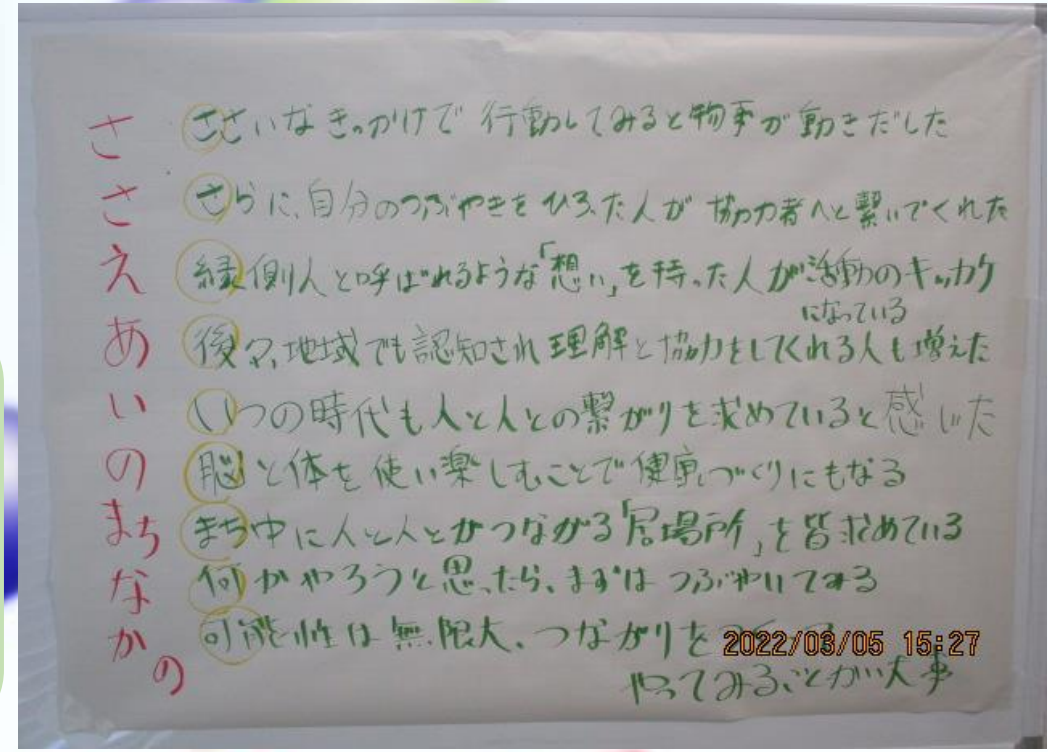 さ ささいなきっかけで 行動してみると物事が動きだした
さ さらに、自分のつぶやきをひろった人が 協力者へと繋いでくれた
え 縁側人と呼ばれるような「想い」を持った人が活動のキッカケ
になっている
あ 後々、地域でも認知され理解と協力をしてくれる人も増えた
い いつの時代も人と人との繋がりを求めていると感じた
の 脳と体を使い楽しむことで健康づくりにもなる
まち まち中に人と人とがつながる「居場所」を皆求めている
な 何かやろうと思ったら、まずは つぶやいてみる
か 可能性は無限大、つながりを
2022/03/05 15:27
の やってみることが大事